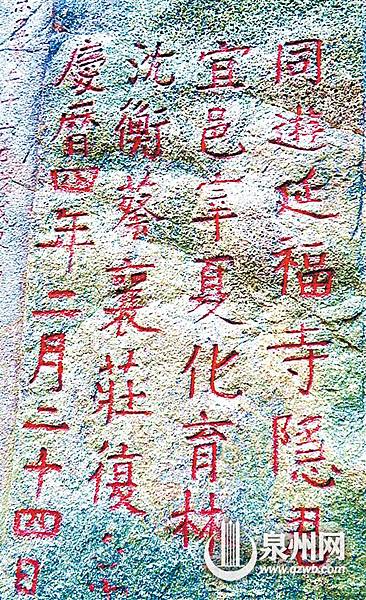 同遊延福寺隱
宜邑宰夏化育林
沈衡蔡襄莊復
慶曆四年二月二十四日
泉州网
www.qzwb.com